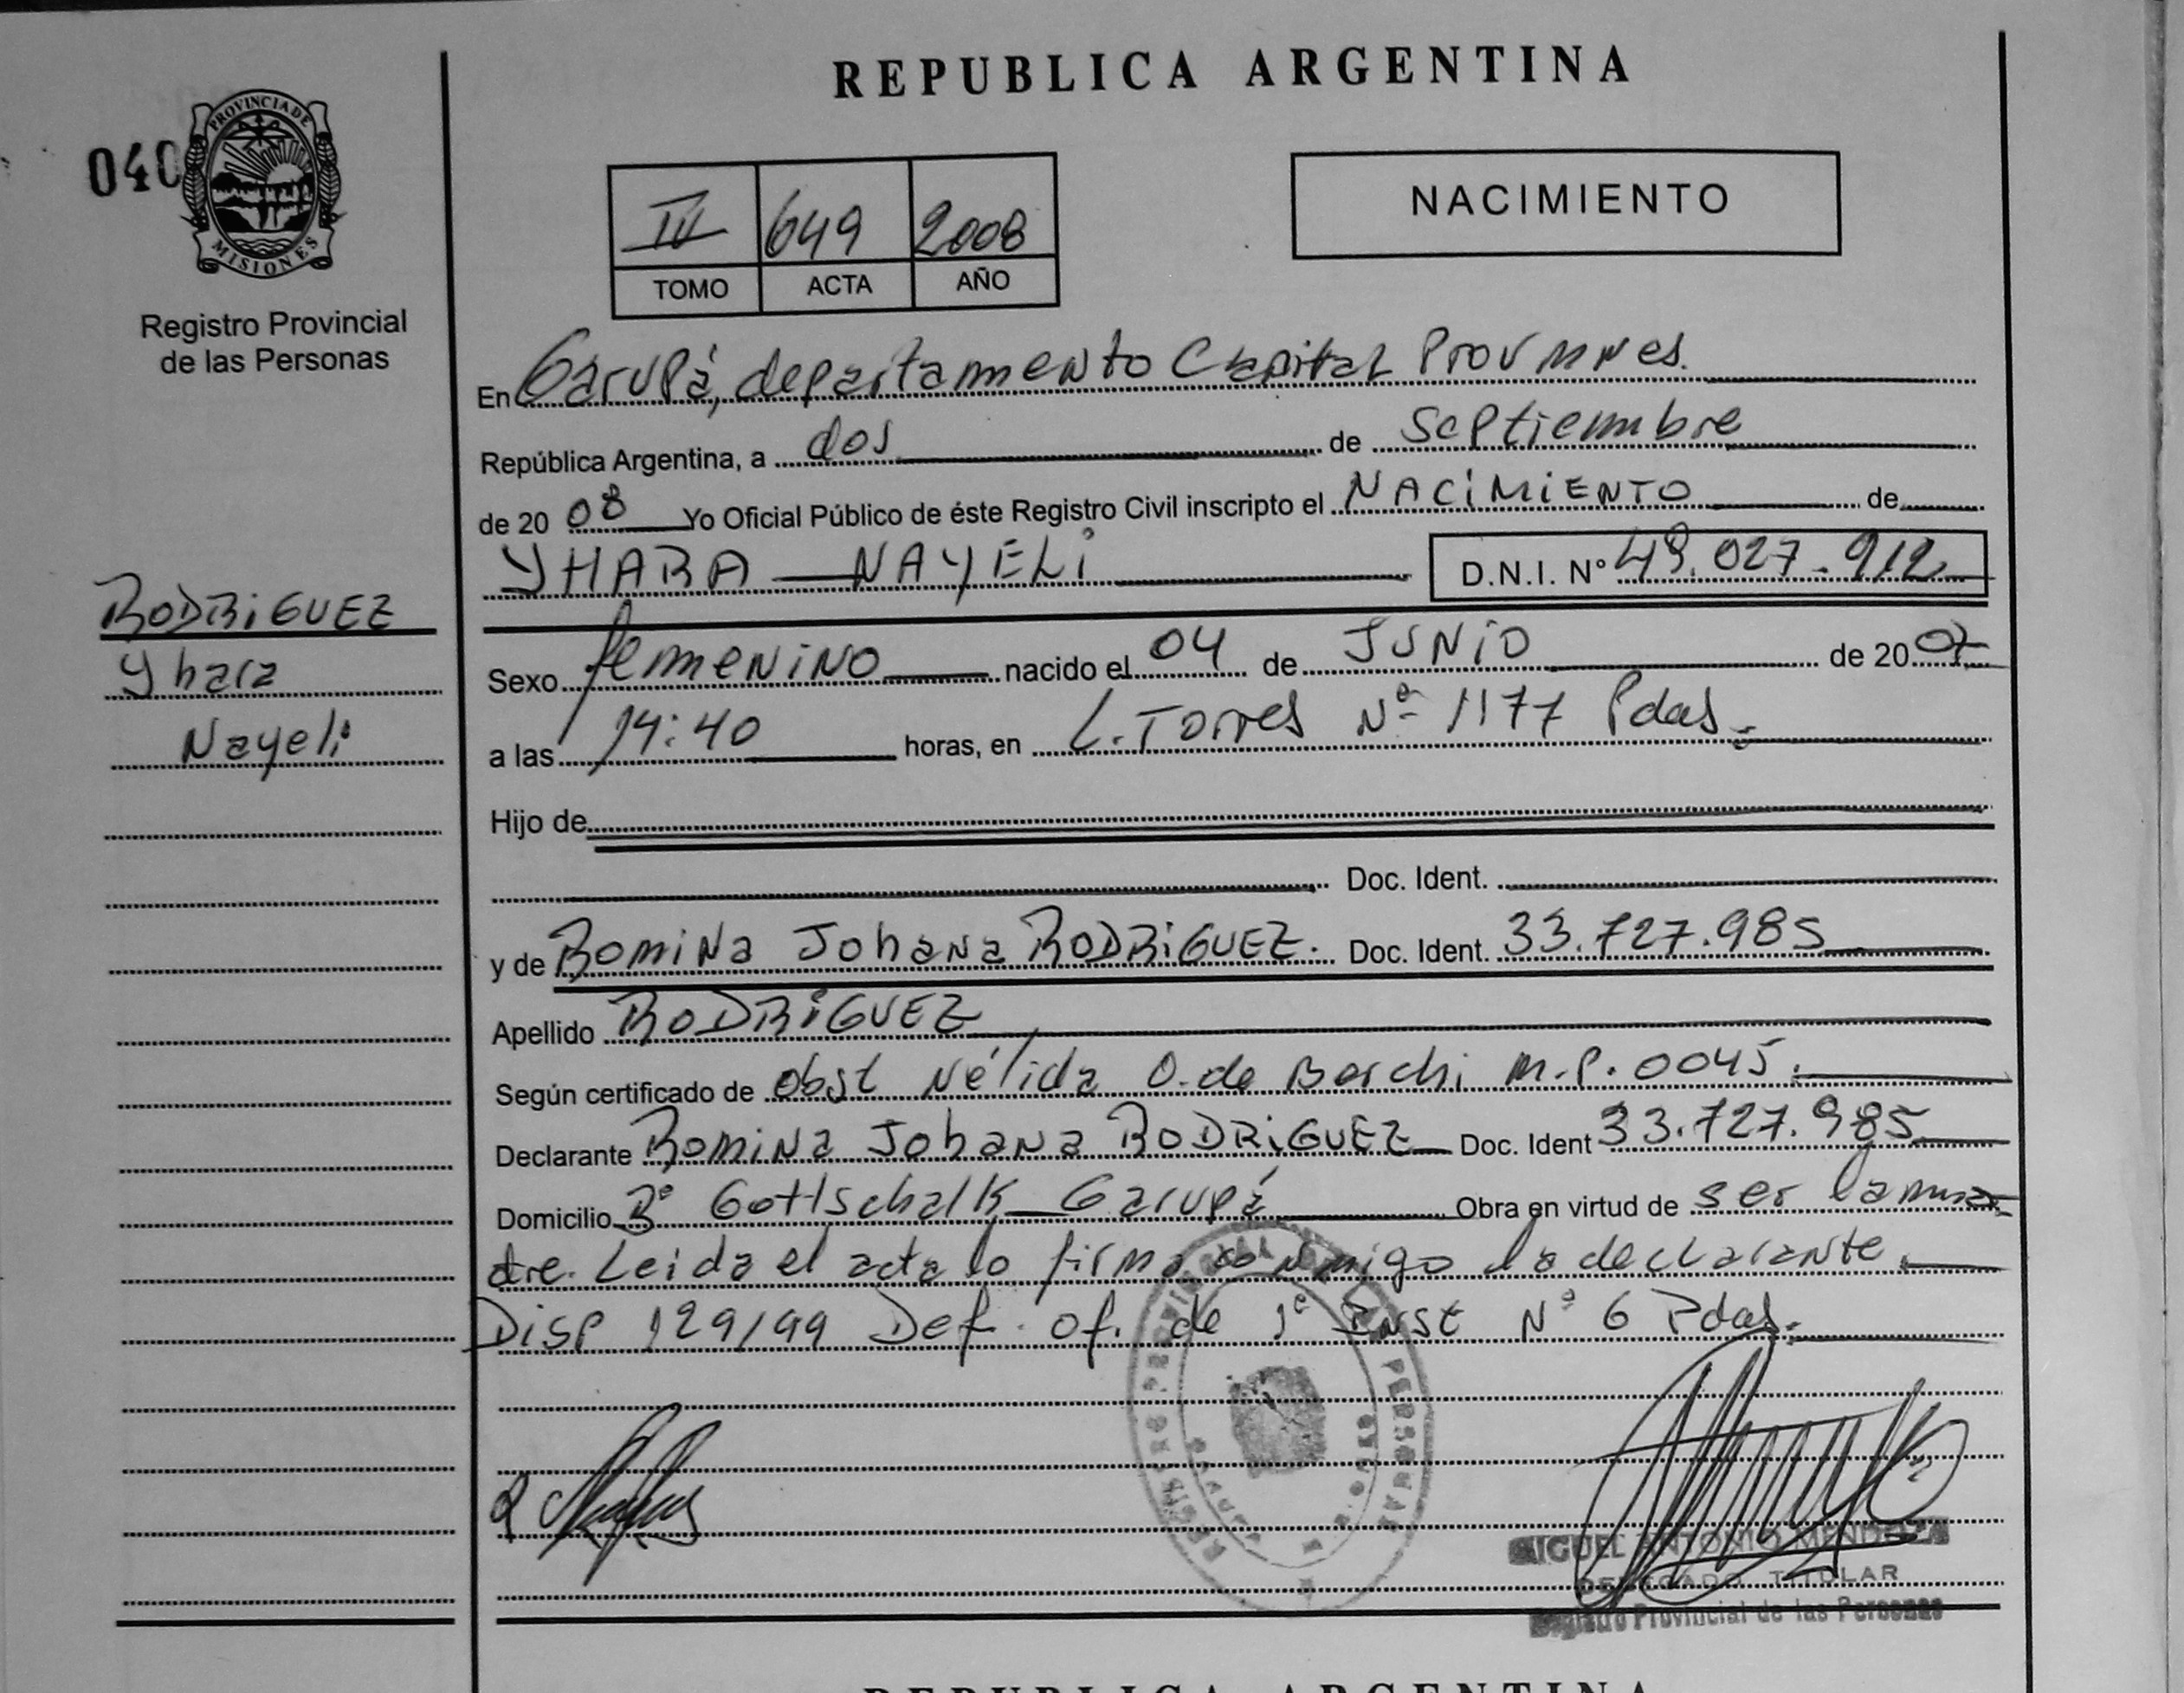 REPUBLICA ARGENTINA
040
PROVINCIA DE
MISIONES
Registro Provincial
de las Personas
IV 649 2008
TOMO ACTA AÑO
NACIMIENTO
En Garupá, departamento Capital Prov Mnes.
República Argentina, a dos de septiembre
de 2008 Yo Oficial Público de éste Registro Civil inscripto el NACIMIENTO de
YHARA NAYELI D.N.I. Nº 49.027.912
RODRIGUEZ
Yhara
Nayeli
Sexo femenino nacido el 04 de JUNIO de 2007
a las 14:40 horas, en L. Torres Nº 1177 Pdas.
Hijo de
Doc. Ident.
y de Romina Johana RODRIGUEZ. Doc. Ident. 33.727.985
Apellido RODRIGUEZ
Según certificado de obst Nélida O. de Borchi M.P. 0045.
Declarante Romina Johana RODRIGUEZ Doc. Ident 33.727.985
Domicilio Bº Gottschalk Garupá Obra en virtud de ser la ma
dre. Leida el acta lo firma conmigo la declarante.
Disp 129/99 Def. of. de 1ª Inst Nº 6 Pdas.
MIGUEL ANTONIO MENDOZA
DELEGADO TITULAR
Registro Provincial de las Personas
REPUBLICA ARGENTINA